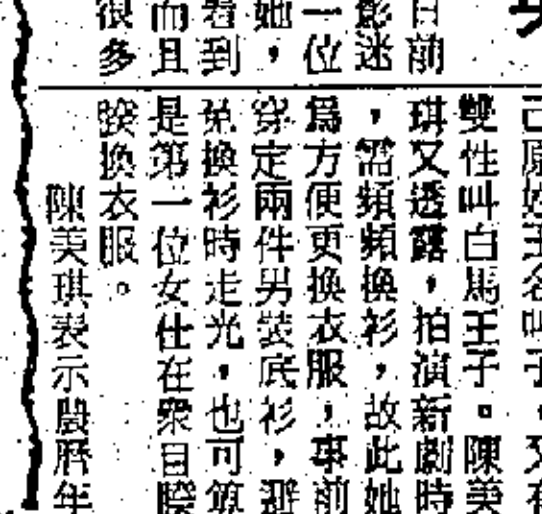 日前
影迷
一位
她，
看到
而且
很多
己原姓王名叫子，又有
雙性叫白馬王子。陳美
琪又透露，拍演新劇時
，需頻頻換衫，故此她
爲方便更換衣服，事前
穿定兩件男裝底衫，避
免換衫時走光，也可算
是第一位女仕在衆目睽
睽換衣服。
陳美琪表示農曆年